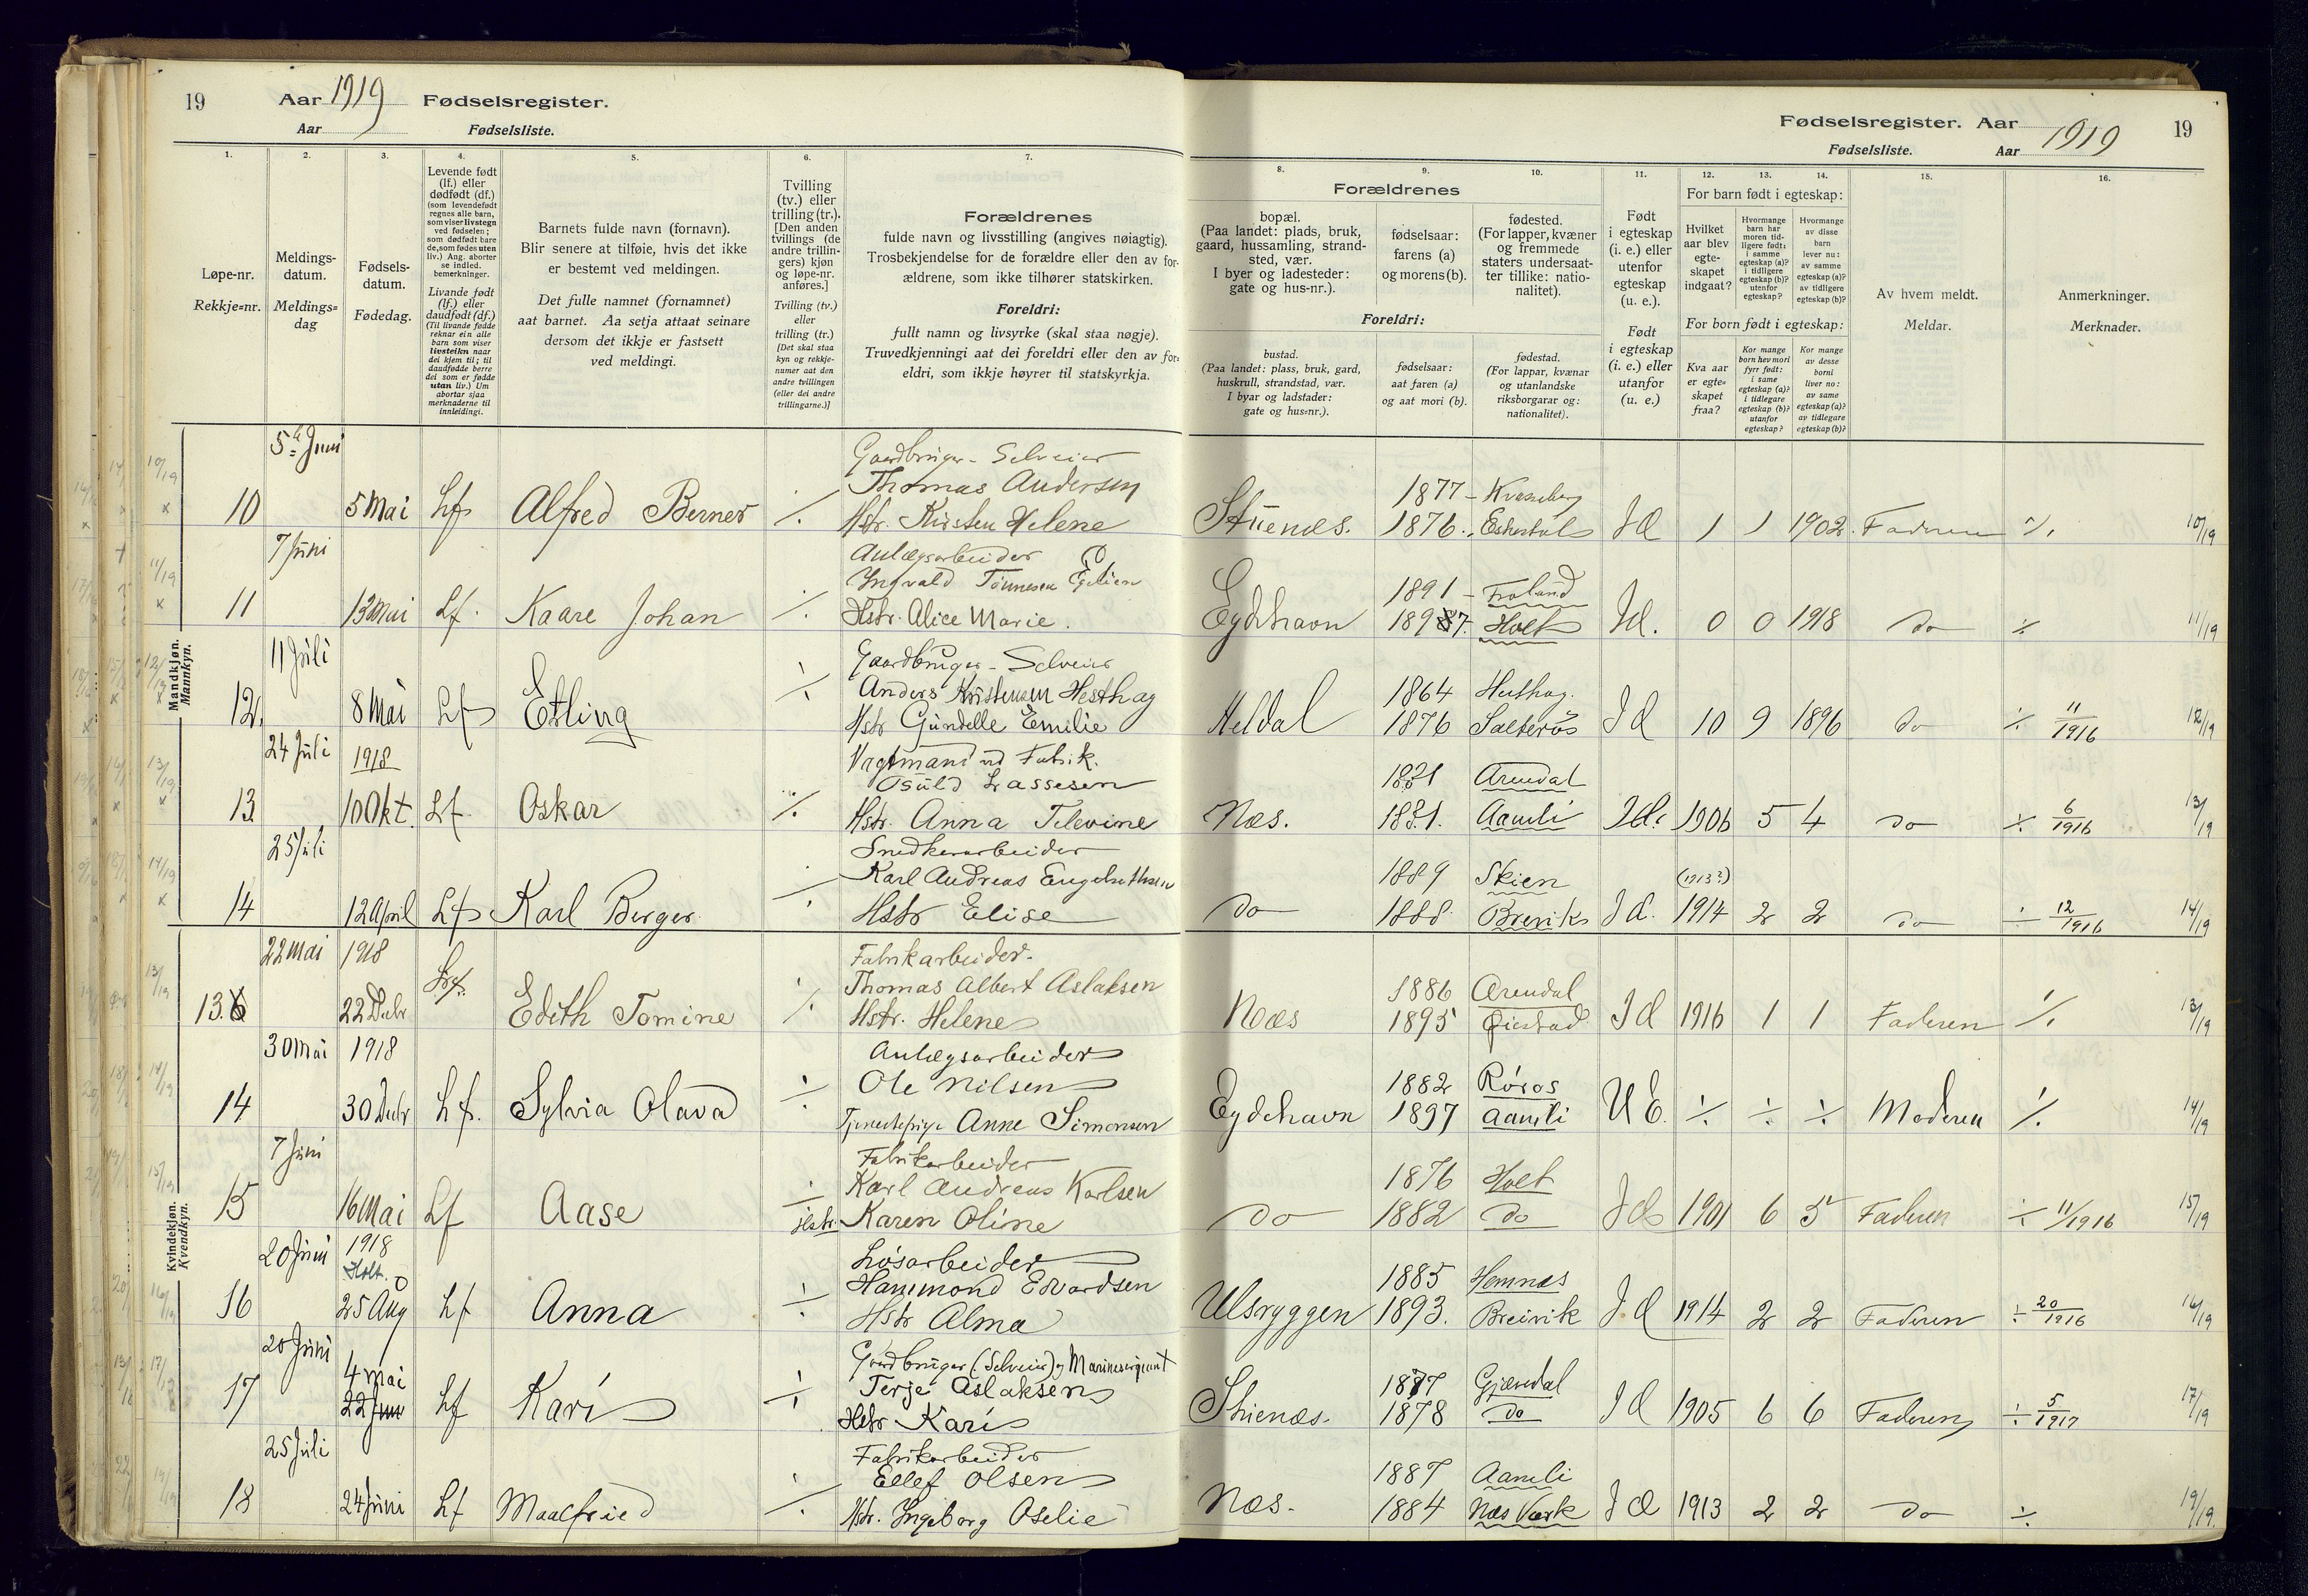 19 Aar 1919 Fødselsregister.
Aar Fødselsliste.
1. 2. 3. 4. 5. 6. 7.
Løpe-nr.
Rekkje=nr.
Meldings-
datum.
Meldings=
dag
Fødsels-
datum.
Fødedag.
Levende født
(lf.) eller
dødfødt (df.)
(som levendefødt
regnes alle barn,
som viser livstegn
ved fødselen;
som dødfødt bare
de, som fødes uten
liv.) Ang. aborter
se indled.
bemerkninger.
Livande født
(lf.) eller
daudfødt (df.)
(Til livande fødde
reknar ein alle
barn som viser
livsteikn naar
dei kjem til; til
daudfødde berre
dei som er fødde
utan liv.) Um
abortar sjaa
merknaderne til
innleidingi.
Barnets fulde navn (fornavn).
Blir senere at tilføie, hvis det ikke
er bestemt ved meldingen.
Det fulle namnet (fornamnet)
aat barnet. Aa setja attaat seinare
dersom det ikkje er fastsett
ved meldingi.
Tvilling
(tv.) eller
trilling (tr.).
[Den anden
tvillings (de
andre trillin-
gers) kjøn
og løpe-nr.
anføres.]
Tvilling (tv.)
eller
trilling (tr.)
[Det skal staa
kyn og rekkje-
numer aat den
andre tvillingen
(eller dei andre
trillingarne.)]
Forældrenes
fulde navn og livsstilling (angives nøiagtig).
Trosbekjendelse for de forældre eller den av for-
ældrene, som ikke tilhører statskirken.
Foreldri:
fullt namn og livsyrke (skal staa nøgje).
Truvedkjenningi aat dei foreldri eller den av for=
eldri, som ikkje høyrer til statskyrkja.
Mandkjøn.
Mannkyn.
5 Juni
Gaardbruger - Selveier
Thomas Andersen
10 5 Mai Lf Alfred Berner ./. Hstr. Kirsten Helene
7 Juni
Anlægsarbeider
Ingvald Tønnesen
11 13 Mai Lf. Kaare Johan ./. Hstr. Alice Marie.
11 Juli
Gaardbruger - Selveier
Anders Kristensen Hesthag
12. 8 Mai Lf Erling ./. Hstr Gundelle Emilie
24 Juli 1918
Vagtmand ved Fabrik.
Osuld Lassesen
13 10 Okt. Lf Oskar ./. Hstr. Anna Televine
25 Juli
Snedkerarbeider
Karl Andreas Engelsethsen
14 12 April Lf Karl Berger ./. Hstr Elise
Kvindekjøn.
Kvendkyn.
22 Mai 1918
Fabrikarbeider
Thomas Albert Aslaksen
13. 22 Decbr Lf. Edith Tomine ./. Hstr. Helene
30 Mai 1918
Anlægsarbeider
Ole Nilsen
14 30 Decbr Lf. Sylvia Olava ./. Tjenestepige Anne Simonsen
7 Juni
Fabrikarbeider
Karl Andreas Karlsen
15 16 Mai Lf Aase ./. Hstr Karen Oline
20 Juni 1918
Holt.
Løsarbeider
Hammond Edvardsen
16 25 Aug Lf Anna ./. Hstr Alma
20 Juni
Gaardbruger (Selveier) og Marinesergeant
4 Mai
Terje Aslaksen
17 22 Juni Lf Kari ./. Hstr Kari
25 Juli
Fabrikarbeider
Ellef Olsen
18 24 Juni Lf Maalfried ./. Hstr. Ingeborg Oselie
Fødselsregister. Aar 1919 19
Fødselsliste. Aar
8. 9. 10. 11. 12. 13. 14. 15. 16.
Forældrenes
bopæl.
(Paa landet: plads, bruk,
gaard, hussamling, strand-
sted, vær.
I byer og ladesteder:
gate og hus-nr.).
fødselsaar:
farens (a)
og morens (b).
fødested.
(For lapper, kvæner
og fremmede
staters undersaat-
ter tillike: natio-
nalitet).
Foreldri:
bustad.
(Paa landet: plass, bruk, gard,
huskrull, strandstad, vær.
I byar og ladstader:
gate og hus=nr.).
fødselsaar:
aat faren (a)
og aat mori (b).
fødestad.
(For lappar, kvænar
og utanlandske
riksborgarar og:
nationalitet).
Født
i egteskap
(i. e.) eller
utenfor
egteskap
(u. e.).
Født
i egteskap
(i. e.) eller
utanfor
(u. e.)
For barn født i egteskap:
Hvilket
aar blev
egte-
skapet
indgaat?
Hvormange
barn har
moren tid-
ligere født:
i samme
egteskap (a)?
i tidligere
egteskap (b)?
utenfor
egteskap?
Hvormange
av disse
barn
lever nu:
av samme
egteskap (a)?
av tidligere
egteskap (b)?
For born født i egteskap:
Kva aar
er egte=
skapet
fraa?
Kor mange
born hev mori
fyrr født:
i same
egteskap (a)?
i tidlegare
egteskap (b)?
utanfor
egteskap?
Kor mange
av desse
borni
liver no:
av same
egteskap (a)?
av tidlegare
egteskap (b)?
Av hvem meldt.
Meldar.
Anmerkninger.
Merknader.
1877
Stuenes. 1876. I E 1 1 1902. Faderen ./. 10/19
1891 - Froland
Eydehavn 1897. Holt I E. 0 0 1918 do ./. 11/19
1864 Hesthag.
Heldal 1876 Salterøs I E 10 9 1896 do ./. 11/1916 12/19
Arendal
Næs. 1881. Aamli I E. 1906 5 4 do ./. 6/1916 13/19
1889 Skien (1913?)
do 1888 Brevik I E. 1914 2 2 do ./. 12/1916 14/19
1886 Arendal
Næs 1895 Øiestad I E 1916 1 1 Faderen ./. 13/19
1882 Röros
Eydehavn 1897 Aamli U E. ./. ./. ./. Moderen ./. 14/19
1876 Holt
do 1882 do I E 1901 6 5 Faderen ./. 11/1916 15/19
1885 Hemnæs
Ulsryggen 1893. Breivik I E 1914 2 2 Faderen ./. 20/1916 16/19
1877 Gjæsedal
Stuenæs. 1878 do I E 1905 6 6 Faderen ./. 5/1917 17/19
1887 Aamli
Næs. 1884 Næs Værk I E 1913 2 2 do ./. 19/19.